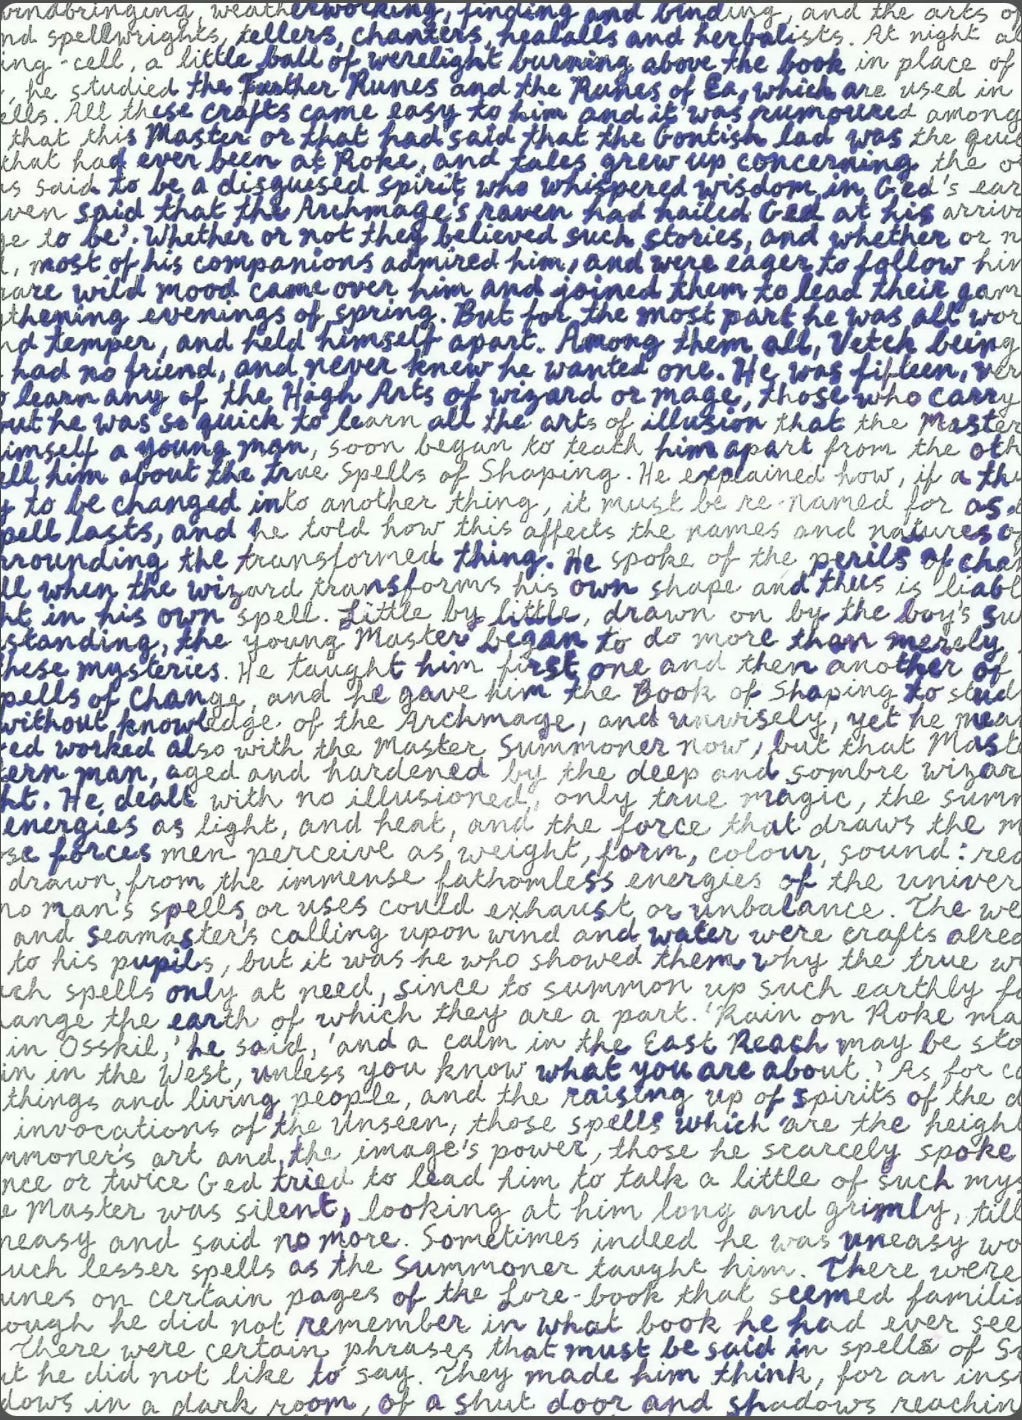 windbringing, weatherworking, finding and binding, and the arts of
nd spellwrights, tellers, chanters, healalls and herbalists. At night al
ing-cell, a little ball of werelight burning above the book in place of
, he studied the Further Runes and the Runes of Ea, which are used in
ells. All these crafts came easy to him and it was rumoured among
that this Master or that had said that the Gontish lad was the quic
that had ever been at Roke, and tales grew up concerning the o
s said to be a disguised spirit who whispered wisdom in Ged's ear
ven said that the Archmage's raven had hailed Ged at his arriva
ge to be'. Whether or not they believed such stories, and whether or n
, most of his companions admired him, and were eager to follow him
rare wild mood came over him and joined them to lead their gam
thening evenings of spring. But for the most part he was all wor
nd temper, and held himself apart. Among them all, Vetch being
had no friend, and never knew he wanted one. He was fifteen, ver
o learn any of the High Arts of wizard or mage, those who carry
but he was so quick to learn all the arts of illusion that the Master
imself a young man, soon began to teach him apart from the oth
ell him about the true Spells of Shaping. He explained how, if a thi
g to be changed into another thing, it must be re-named for as
pell lasts, and he told how this affects the names and natures of
rrounding the transformed thing. He spoke of the perils of chan
ll when the wizard transforms his own shape and thus is liabl
ht in his own spell. Little by little, drawn on by the boy's su
standing, the young Master began to do more than merely
hese mysteries. He taught him first one and then another of
pells of Change, and he gave him the Book of Shaping to stud
without knowledge of the Archmage, and unwisely, yet he mean
ed worked also with the Master Summoner now, but that Maste
ern man, aged and hardened by the deep and sombre wizar
ht. He dealt with no illusioned, only true magic, the summ
energies as light, and heat, and the force that draws the m
se forces men perceive as weight, form, colour, sound: rea
drawn, from the immense fathomless energies of the univer
no man's spells or uses could exhaust or unbalance. The we
and seamaster's calling upon wind and water were crafts alrea
to his pupils, but it was he who showed them why the true wi
ch spells only at need, since to summon up such earthly fo
ange the earth of which they are a part. 'Rain on Roke ma
in Osskil,' he said, 'and a calm in the East Reach may be sto
in in the West, unless you know what you are about.' As for ca
things and living people, and the raising up of spirits of the d
invocations of the Unseen, those spells which are the height
mmoner's art and the image's power, those he scarcely spoke
nce or twice Ged tried to lead him to talk a little of such mys
e Master was silent, looking at him long and grimly, till
neasy and said no more. Sometimes indeed he was uneasy wo
uch lesser spells as the Summoner taught him. There were
unes on certain pages of the Lore-book that seemed familia
ough he did not remember in what book he had ever see
There were certain phrases that must be said in spells of Su
t he did not like to say. They made him think, for an inst
dows in a dark room, of a shut door and shadows reachin